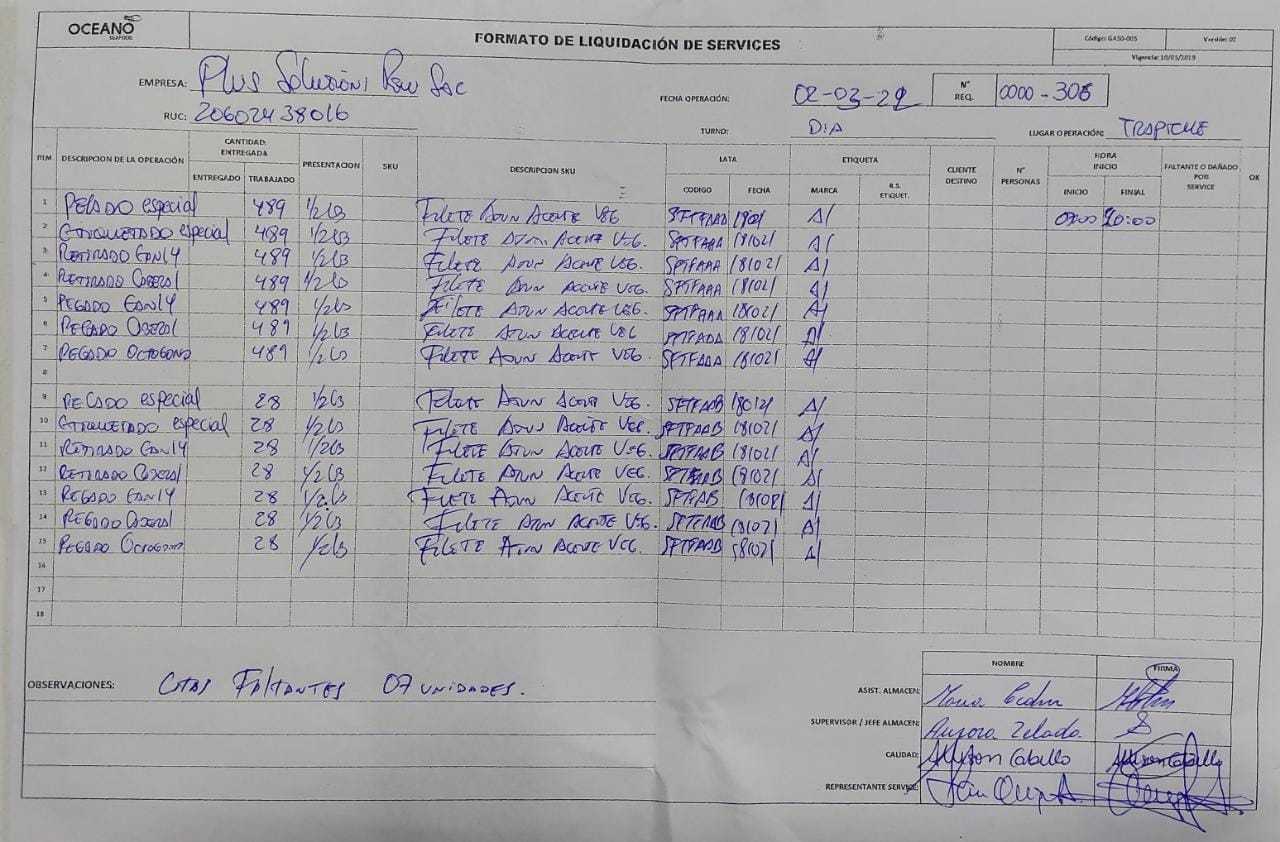 OCEANO
SEAFOOD
FORMATO DE LIQUIDACIÓN DE SERVICES
Código: GA50-005 Versión: 02
Vigencia: 10/05/2019
EMPRESA: Plus Solutions Peru SAC
FECHA OPERACIÓN: 02-03-22
N° REQ. 0000 - 306
RUC: 20602438016
TURNO: DIA
LUGAR OPERACIÓN: TRAPICHE
ITEM DESCRIPCION DE LA OPERACIÓN CANTIDAD ENTREGADA PRESENTACION SKU DESCRIPCION SKU LATA ETIQUETA CLIENTE DESTINO N° PERSONAS HORA INICIO FALTANTE O DAÑADO POR SERVICE OK
ENTREGADO TRABAJADO CODIGO FECHA MARCA R.S. ETIQUET. INICIO FINIAL
1 PEGADO especial 489 1/2 LB FILETE ATUN ACEITE VEG A/ 20:00
2 ETIQUETADO especial 489 1/2 LB FILETE ATUN ACEITE VEG. SFTFAAA 181021 A/
3 RETIRADO EAN14 489 1/2 LB FILETE ATUN ACEITE VEG. SFTFAAA 181021 A/
4 RETIRADO 489 1/2 LB FILETE ATUN ACEITE VEG. SFTFAAA 181021 A/
5 PEGADO EAN14 489 1/2 LB FILETE ATUN ACEITE VEG. SFTFAAA 181021 A/
6 PEGADO 489 1/2 LB FILETE ATUN ACEITE VEG SFTFAAA 181021 A/
7 PEGADO OCTOGONO 489 1/2 LB FILETE ATUN ACEITE VEG. SFTFAAA 181021 A/
8
9 PEGADO especial 28 1/2 LB FILETE ATUN ACEITE VEG. SFTFAAB A/
10 ETIQUETADO especial 28 1/2 LB FILETE ATUN ACEITE VEG. SFTFAAB 181021 A/
11 RETIRADO EAN14 28 1/2 LB FILETE ATUN ACEITE VEG. SFTFAAB 181021 A/
12 RETIRADO 28 1/2 LB FILETE ATUN ACEITE VEG. SFTFAAB 181021 A/
13 PEGADO EAN14 28 1/2 LB FILETE ATUN ACEITE VEG. SFTFAB A/
14 PEGADO 28 1/2 LB FILETE ATUN ACEITE VEG. SFTFAAB 181021 A/
15 PEGADO OCTOGONO 28 1/2 LB FILETE ATUN ACEITE VEG. SFTFAAB 181021 A/
16
17
18
OBSERVACIONES: FALTANTES 07 UNIDADES.
NOMBRE FIRMA
ASIST. ALMACEN: Maria
SUPERVISOR / JEFE ALMACEN: Aurora Zelada.
CALIDAD: Allyson Cabello
REPRESENTANTE SERVICE: